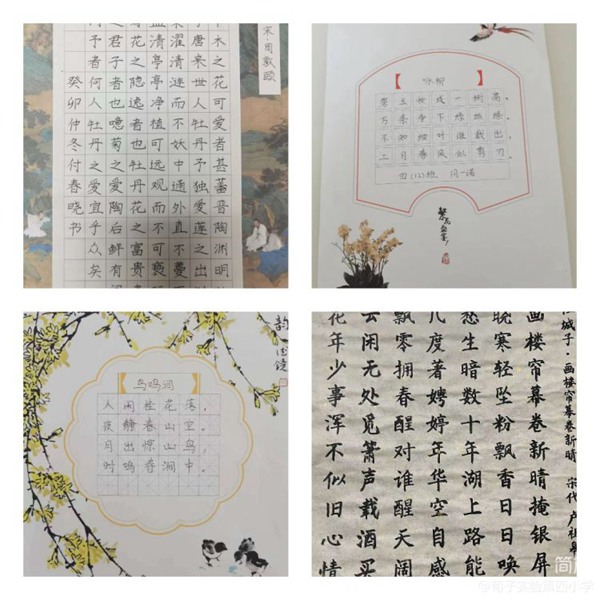 宋·周敦颐
木之花可爱者甚蕃晋陶渊明
唐来世人牡丹予独爱莲之出
濯清涟而不妖中通外直不蔓
清亭亭净植可远观而不可亵
花之隐逸者也牡丹花之富贵
之君子者也噫菊之爱陶后鲜有
予者何人牡丹之爱宜乎众矣
癸卯仲冬付春晓书
【咏柳】
碧玉妆成一树高，
万条垂下绿丝绦。
不知细叶谁裁出，
二月春风似剪刀。
四(12)班 闫一诺
韵
鸟鸣涧
人闲桂花落，
夜静春山空。
月出惊山鸟，
时鸣春涧中。
城子·画楼帘幕卷新晴 宋代 卢祖皋
画楼帘幕卷新晴掩银屏
晓寒轻坠粉飘香日日唤
愁生暗数十年湖上路能
几度著娉婷年华空自感
飘零拥春酲对谁醒天阔
云闲无处觅箫声载酒买
花年少事浑不似旧心情